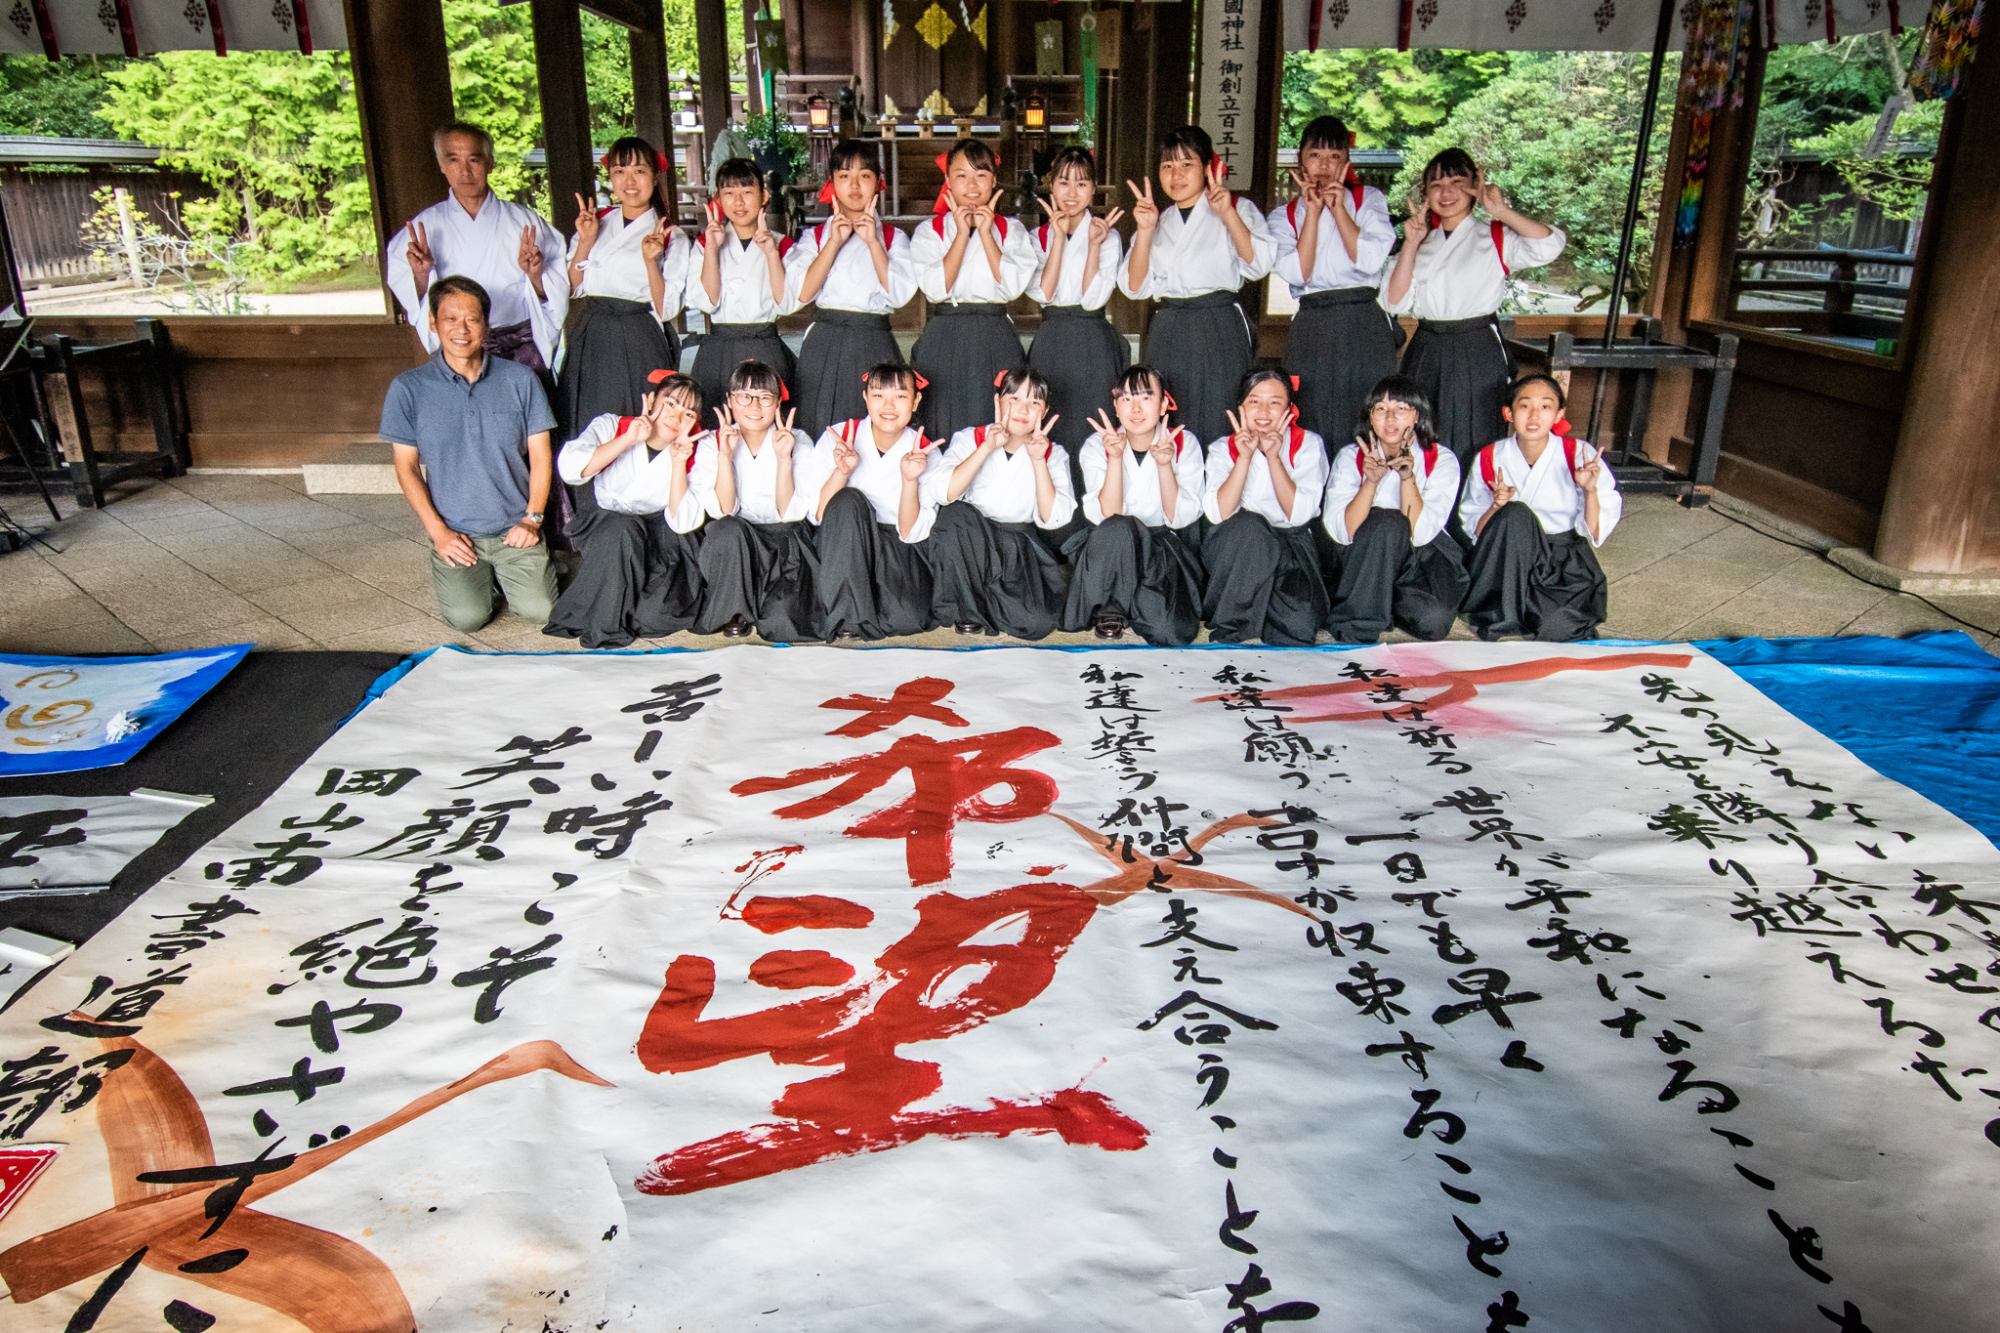 國神社 御創立百五十年
先の見えない
不安と隣り合わせの
乗り越えろ
私達は祈る 世界が平和になることを
一日でも早く
私達は願う コロナが収束することを
私達は誓う 仲間と支え合うことを
希望
苦しい時こそ
笑顔を絶やさずに
岡山南
書道部